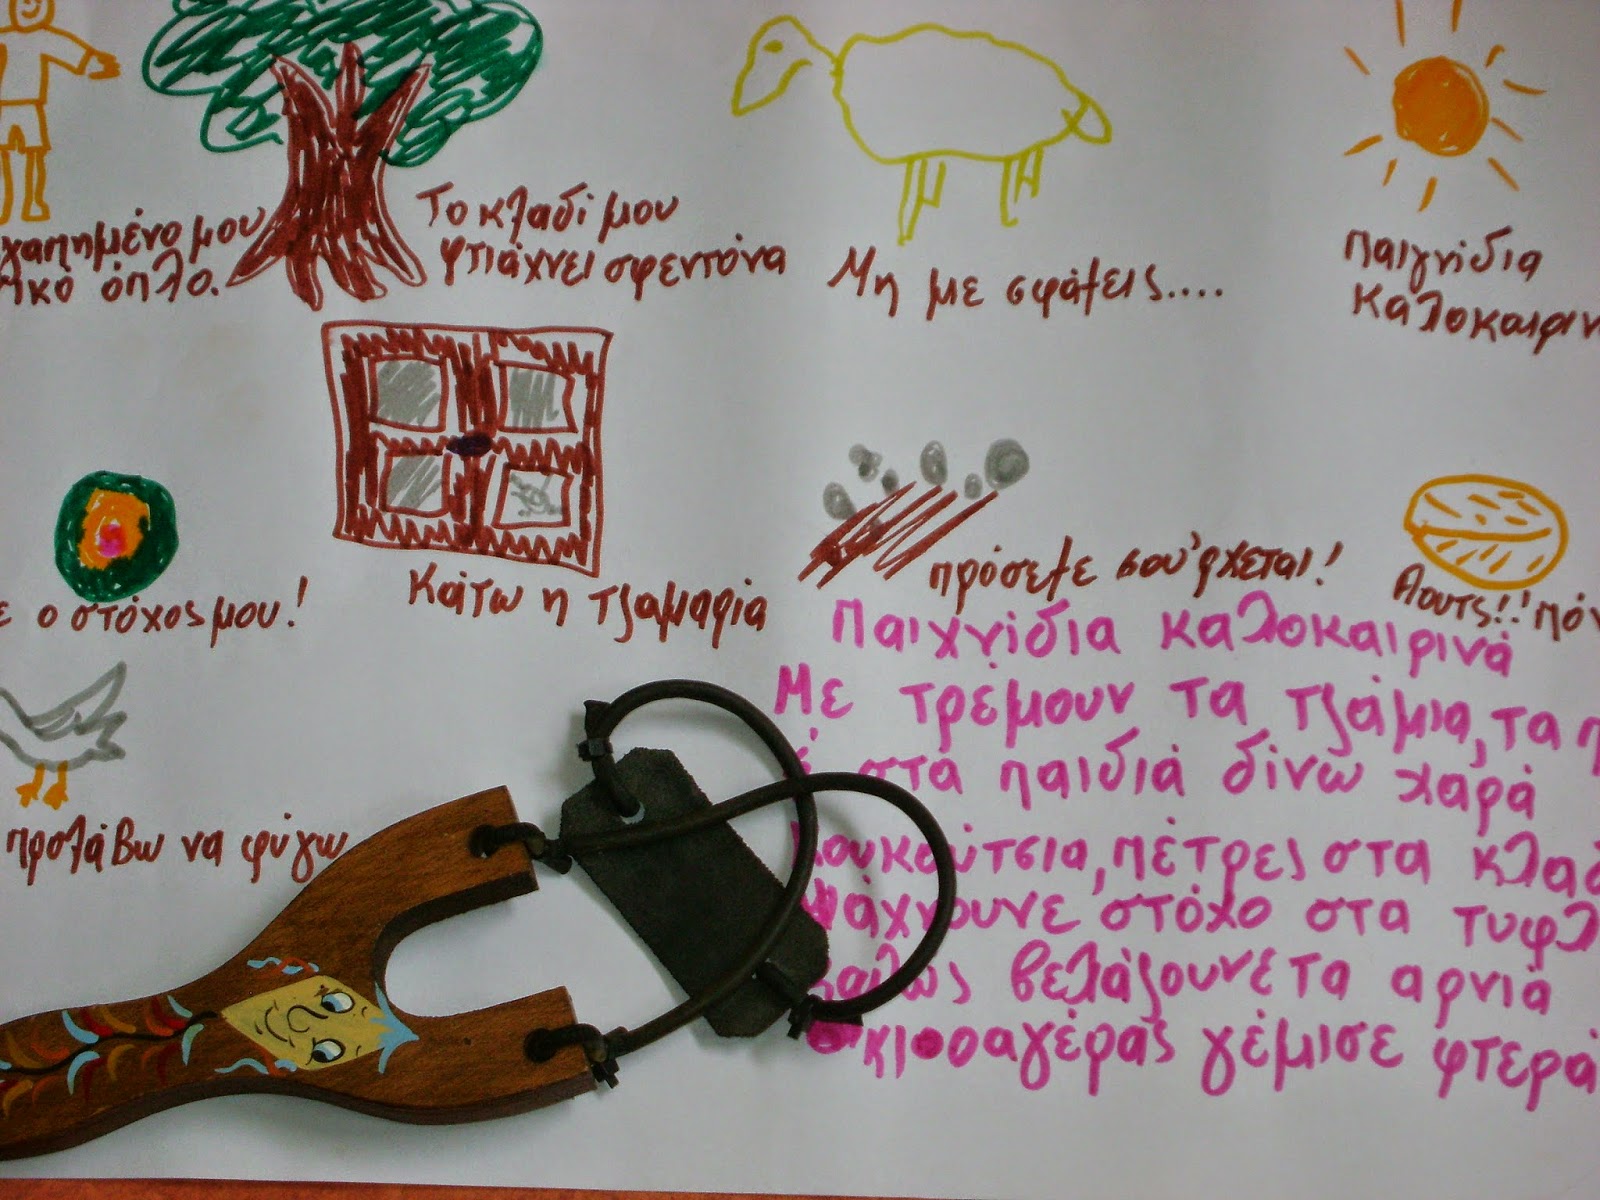 μου
όπλο.
Το κλαδί μου
φτιάχνει σφεντόνα
Μη με σφάξεις....
παιγνίδια
καλοκαιριν
ο στόχος μου!
Κάτω η τζαμαρία
πρόσεξε σου'ρχεται!
Άουτς!!
προλάβω να φύγω
Παιχνίδια καλοκαιρινά
Με τρέμουν τα τζάμια, τα π
στα παιδιά δίνω χαρά
κουκούτσια, πέτρες στα κλαδ
ψάχνουνε στόχο στα τυφλ
βελάζουνε τα αρνιά
κι ο αγέρας γέμισε φτερά